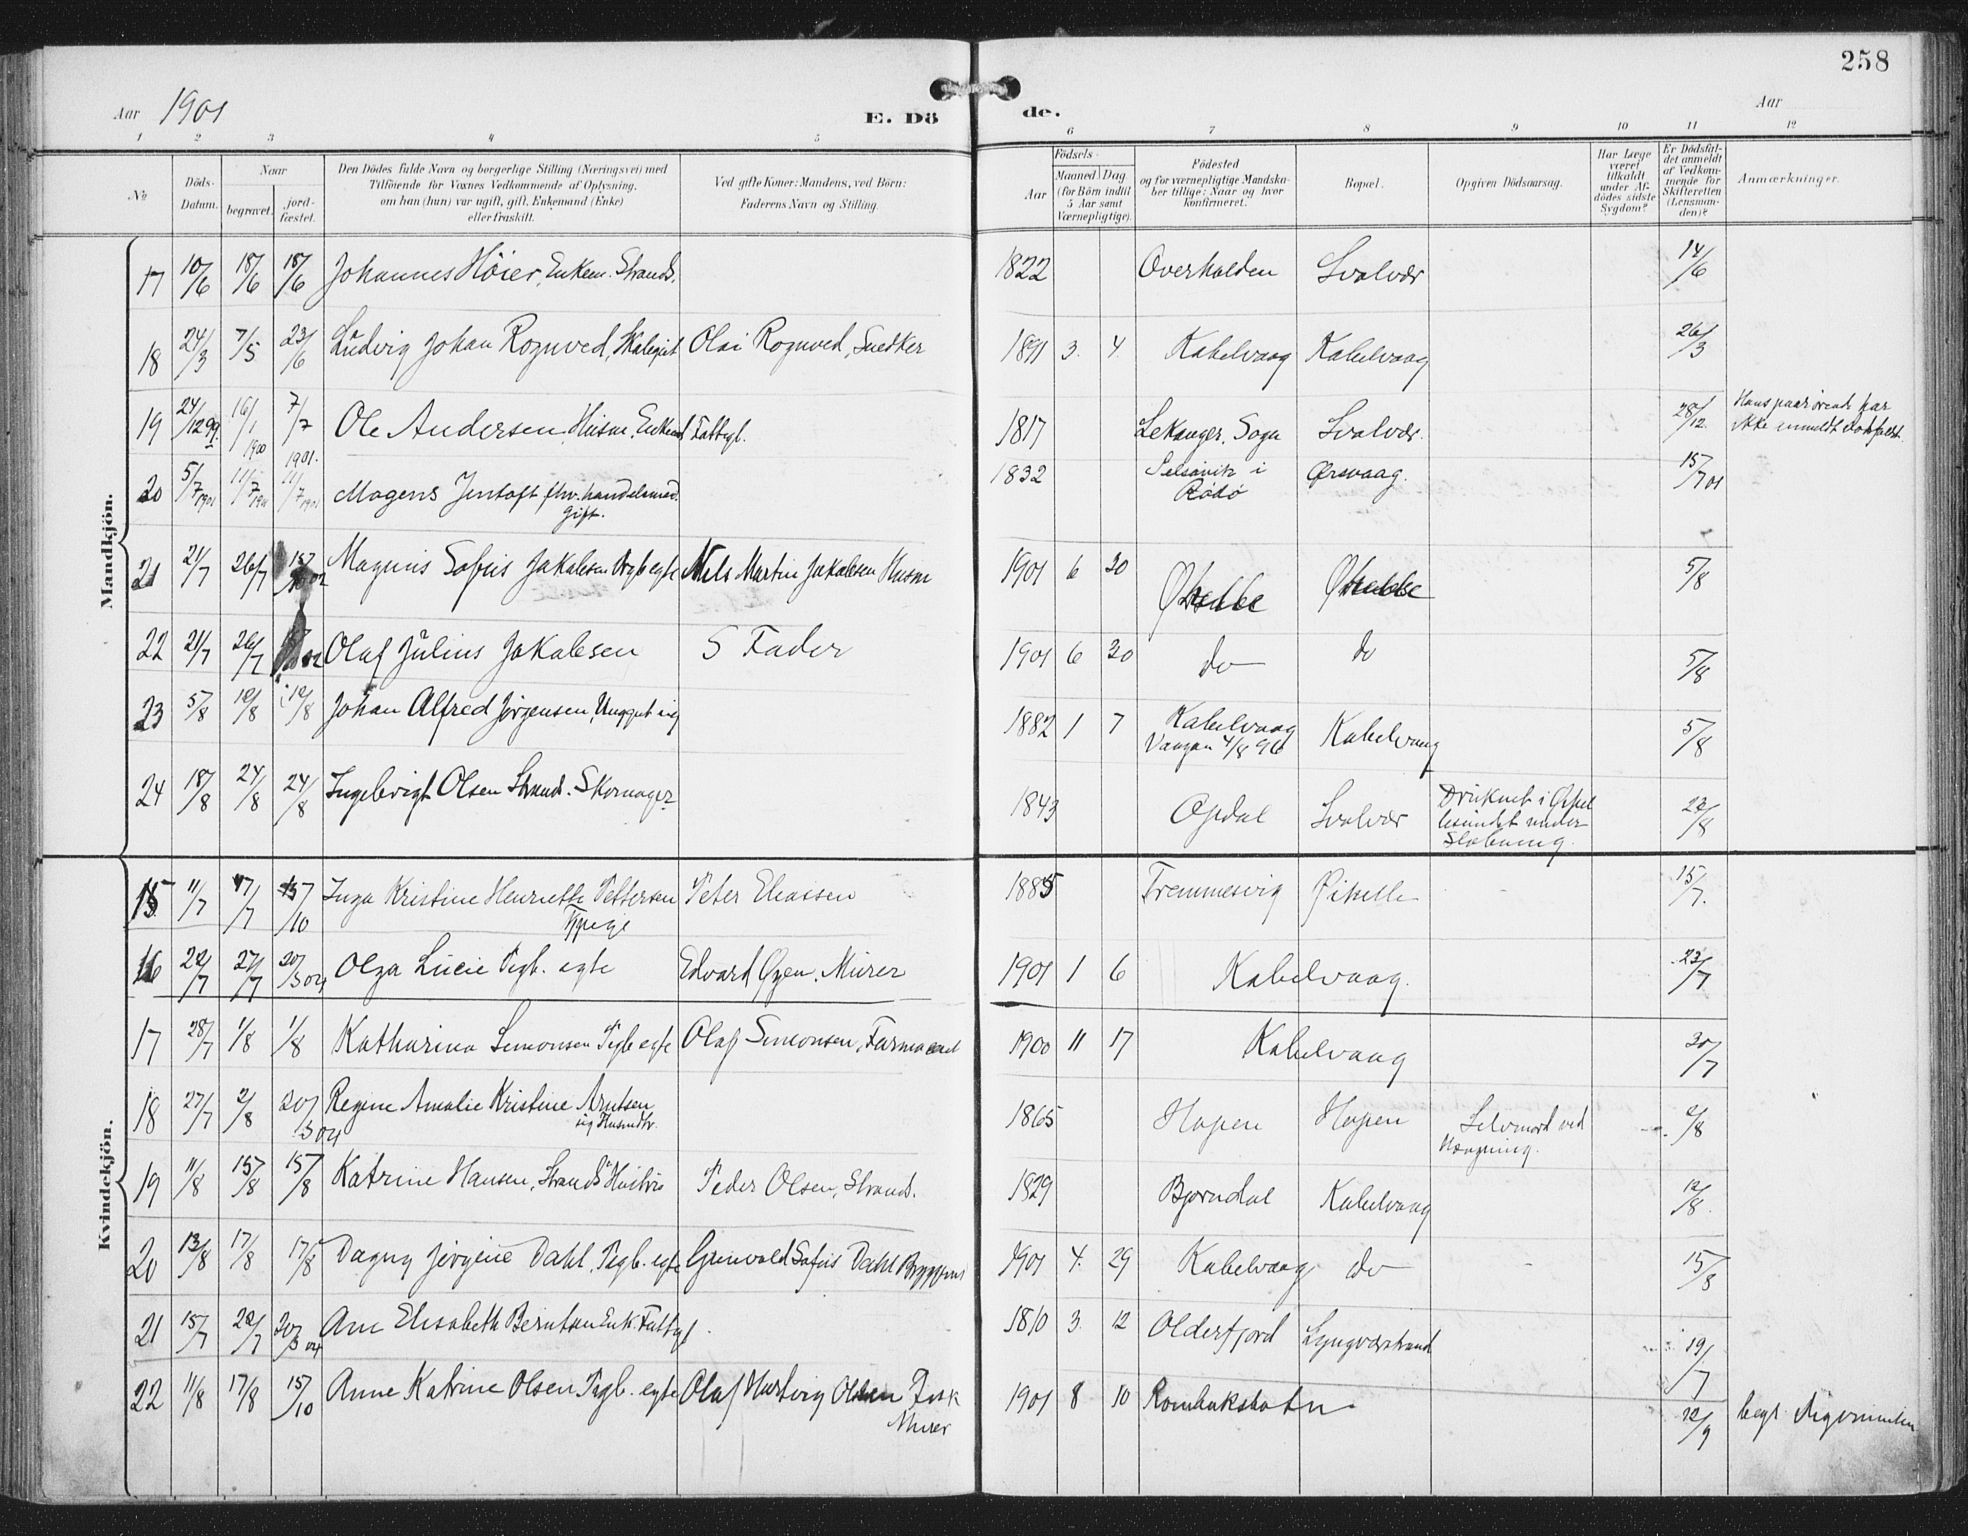 258
Aar 1901
E. Dö
de.
Aar
1 2 3 4 5 6 7 8 9 10 11 12
No
Döds-
Datum.
Naar
begravet.
jord-
fæstet.
Den Dödes fulde Navn og borgerlige Stilling (Næringsvei) med
Tilföiende for Voxnes Vedkommende af Oplysning,
om han (hun) var ugift, gift, Enkemand (Enke)
eller fraskilt.
Ved gifte Koner: Mandens, ved Börn:
Faderens Navn og Stilling.
Födsels-
Aar
Maaned Dag
(for Börn indtil
5 Aar samt
Værnepligtige).
Födested
og for værnepligtige Mandska-
ber tillige: Naar og hvor
konfirmeret.
Bopæl.
Opgiven Dödsaarsag.
Har Læge
været
tilkaldt
under Af-
dödes sidste
Sygdom?
Er Dödsfal-
det anmeldt
af Vedkom-
mende for
Skifteretten
(Lensman-
den)?
Anmærkninger.
Mandkjön.
17 10/6 18/6 18/6 Johannes Höier, Enkem. Strands. 1822 Overhalden Svolvær 14/6
18 24/3 7/5 23/6 Ludvig Johan Rognved, Skolegut Olai Rognved, Snedker 1891 3. 4. Kabelvaag Kabelvaag 26/3
19 24/12 99. 16/1 1900 7/7 1901. Ole Andersen, Husm. Enkem Fattigl. 1817 Lekanger, Sogn Svolvær. 28/12. Hans paarörende har
ikke anmeldt dödsfaldet.
20 5/7 1901 11/7 1901 11/7 1901 Mogens Jentoft fhv. handelsmd.
Gift. 1832 Selsövik i
Rödö Ørsvaag. 15/7 01
21 21/7 26/7 Magnus Sofus Jakobsen Dgb egte Nils Martin Jakobsen Husm 1901 6 20 5/8
22 21/7 26/7 Olaf Julius Jakobsen S Fader 1901 6 20 do do 5/8
23 5/8 12/8 12/8 Johan Alfred Jörgensen, Unggut ug 1882 1 7 Kabelvaag
Vaagan 4/8 96 Kabelvaag 5/8
24 18/8 24/8 24/8 Ingebrigt Olsen Strand. Skomager 1843 Opdal Svolvær Druknet i
under
22/8
Kvindekjön.
15 11/7 17/7 15/10 Inga Kristine Henriette Pettersen
Tjpige Peter Eliassen 1885 Tremmesvig 15/7.
16 22/7 27/7 20/3 04 Olga Lucie Pigb. egte Edvard Murer 1901 1 6 Kabelvaag. 23/7
17 28/7 1/8 1/8 Katharina Simonsen Pigb egte Olaf Simonsen, Formand 1900 11 17 Kabelvaag 30/7
18 27/7 2/8 20/3 04 Regine Amalie Kristine Arntsen
ug Husmdtr. 1865 Hopen Hopen Selvmord ved
Hængning. 2/8
19 11/8 15/8 15/8 Katrine Hansen, Strands Hustru Peder Olsen, Strands. 1829 Bjorndal Kabelvaag 12/8.
20 13/8 17/8 17/8 Dagny Jörgine Dahl, Pigb. egte Grunvald Sofus Dahl 1901 4. 29 Kabelvaag do 15/8
21 15/7 22/7 20/3 04 Ane Elisabeth Berntsen Enk. Fattigl. 1810 3. 12 Olderfjord Lyngværstrand 19/7
22 11/8 17/8 15/10 Anne Katrine Olsen Pigb. egte Olaf Hartvig Olsen Fisk
Murer 1901 8 10 Rombaksbotn 12/9